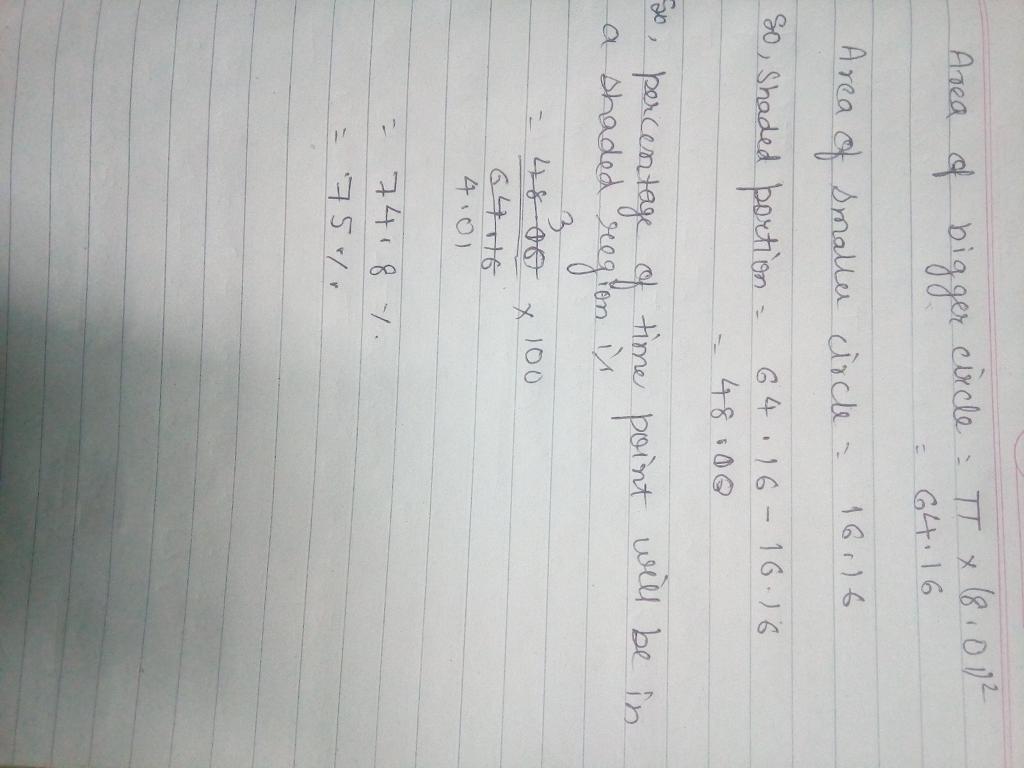 Area of bigger circle = π × (8.01)²
= 64.16
Area of smaller circle = 16.16
So, Shaded portion = 64.16 - 16.16
= 48.00
So, percentage of time point will be in
a shaded region is
3
= 48.00 × 100
64.16
4.01
= 74.8 %.
= 75 %.